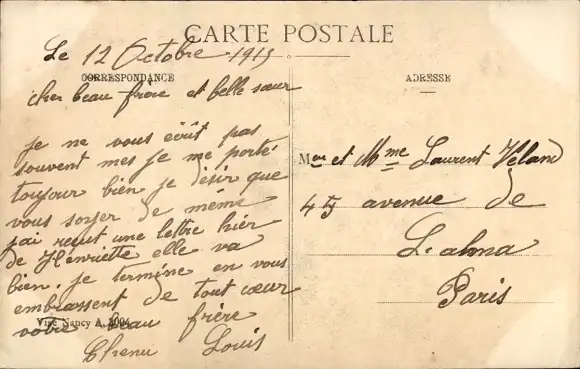 CARTE POSTALE
Le 12 Octobre 1915
CORRESPONDANCE
cher beau frère et belle sœur
je ne vous écrit pas
souvent mes je me porte
toujour bien je désir que
vous soyer de même
j'ai recut une lettre hier
de Henriette elle va
bien. je termine en vous
embrassent de tout cœur
votre beau frère
Visé Nancy A, 2004
Chenu Louis
ADRESSE
Meur et Mme Laurent Veland
45 avenue de
L'alma
Paris